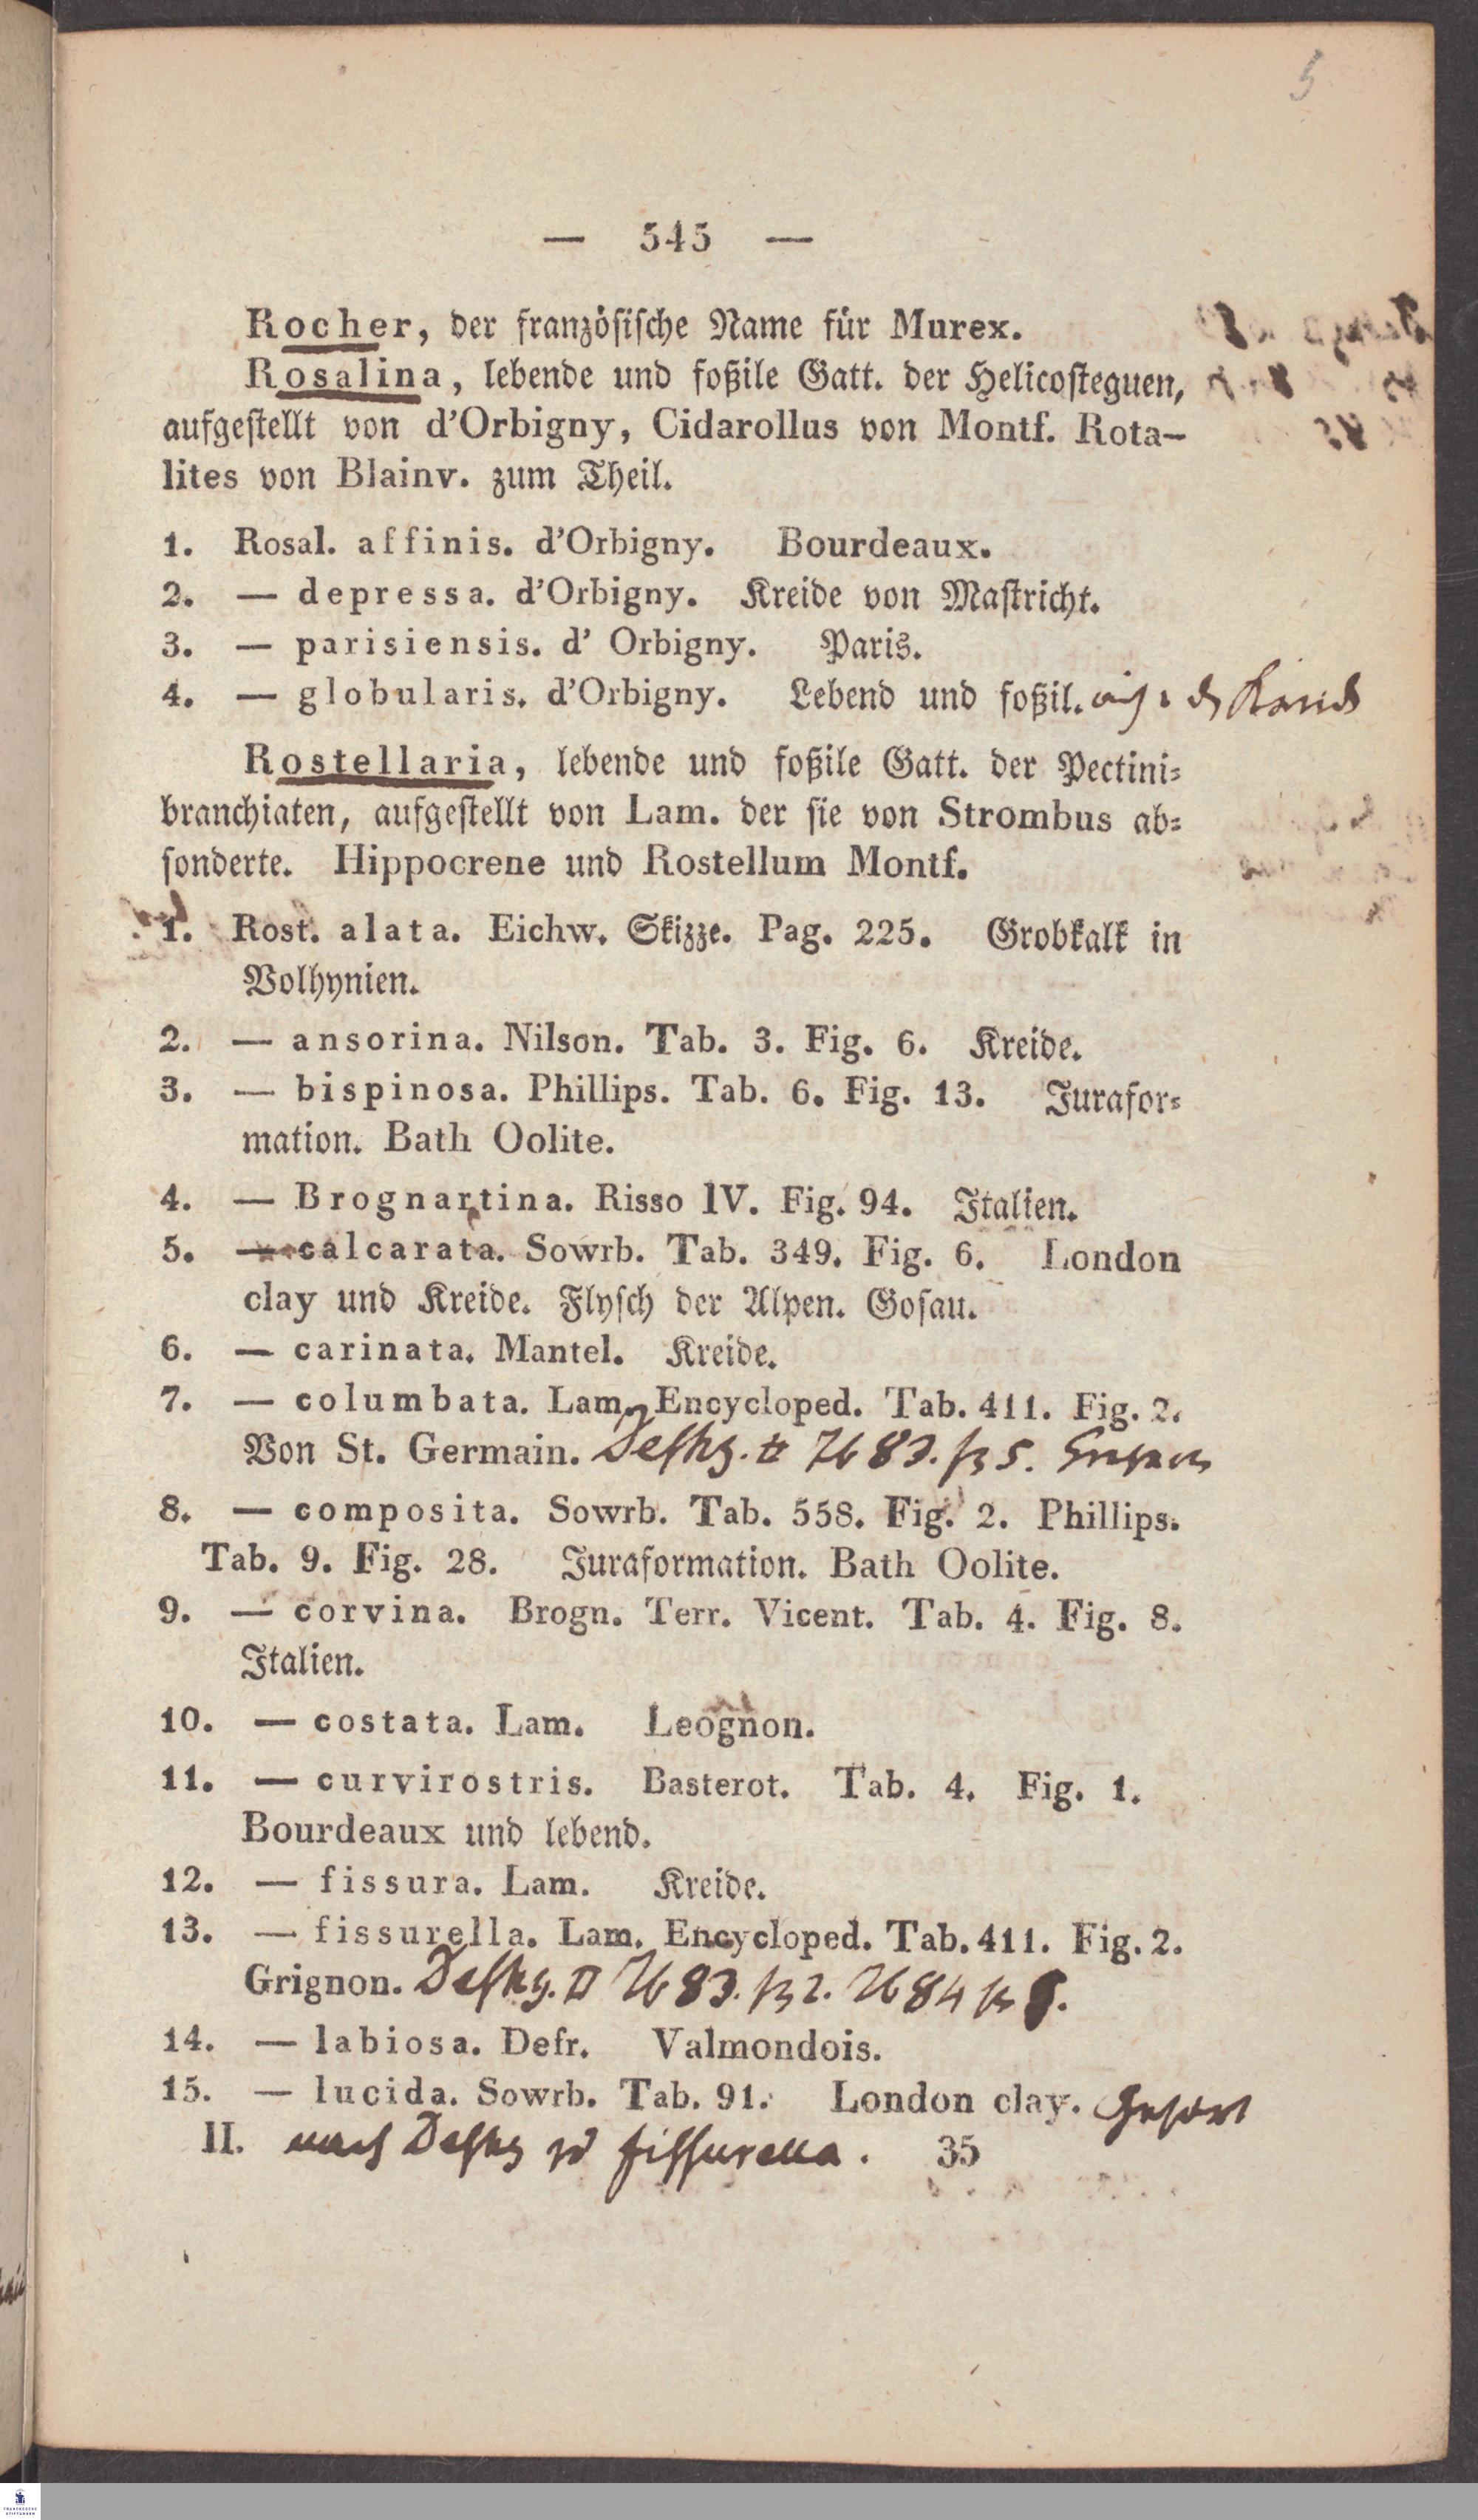 5
— 545 —
Rocher, der französische Name für Murex.
Rosalina, lebende und foßile Gatt. der Helicosteguen,
aufgestellt von d'Orbigny, Cidarollus von Montf. Rota-
lites von Blainv. zum Theil.
1. Rosal. affinis. d'Orbigny. Bourdeaux.
2. — depressa. d'Orbigny. Kreide von Mastricht.
3. — parisiensis. d' Orbigny. Paris.
4. — globularis. d'Orbigny. Lebend und foßil.
Rostellaria, lebende und foßile Gatt. der Pectini-
branchiaten, aufgestellt von Lam. der sie von Strombus ab-
sonderte. Hippocrene und Rostellum Montf.
1. Rost. alata. Eichw. Skizze. Pag. 225. Grobkalk in
Volhynien.
2. — ansorina. Nilson. Tab. 3. Fig. 6. Kreide.
3. — bispinosa. Phillips. Tab. 6. Fig. 13. Jurafor-
mation. Bath Oolite.
4. — Brognartina. Risso IV. Fig. 94. Italien.
5. — calcarata. Sowrb. Tab. 349. Fig. 6. London
clay und Kreide. Flysch der Alpen. Gosau.
6. — carinata. Mantel. Kreide.
7. — columbata. Lam. Encycloped. Tab. 411. Fig. 2.
Von St. Germain. Deshs. 83. 5.
8. — composita. Sowrb. Tab. 558. Fig. 2. Phillips.
Tab. 9. Fig. 28. Juraformation. Bath Oolite.
9. — corvina. Brogn. Terr. Vicent. Tab. 4. Fig. 8.
Italien.
10. — costata. Lam. Leognon.
11. — curvirostris. Basterot. Tab. 4. Fig. 1.
Bourdeaux und lebend.
12. — fissura. Lam. Kreide.
13. — fissurella. Lam. Encycloped. Tab. 411. Fig. 2.
Grignon. Deshs. II 83. 2. 84
14. — labiosa. Defr. Valmondois.
15. — lucida. Sowrb. Tab. 91. London clay. Gehört
II. nach Deshs zu fissurella. 35